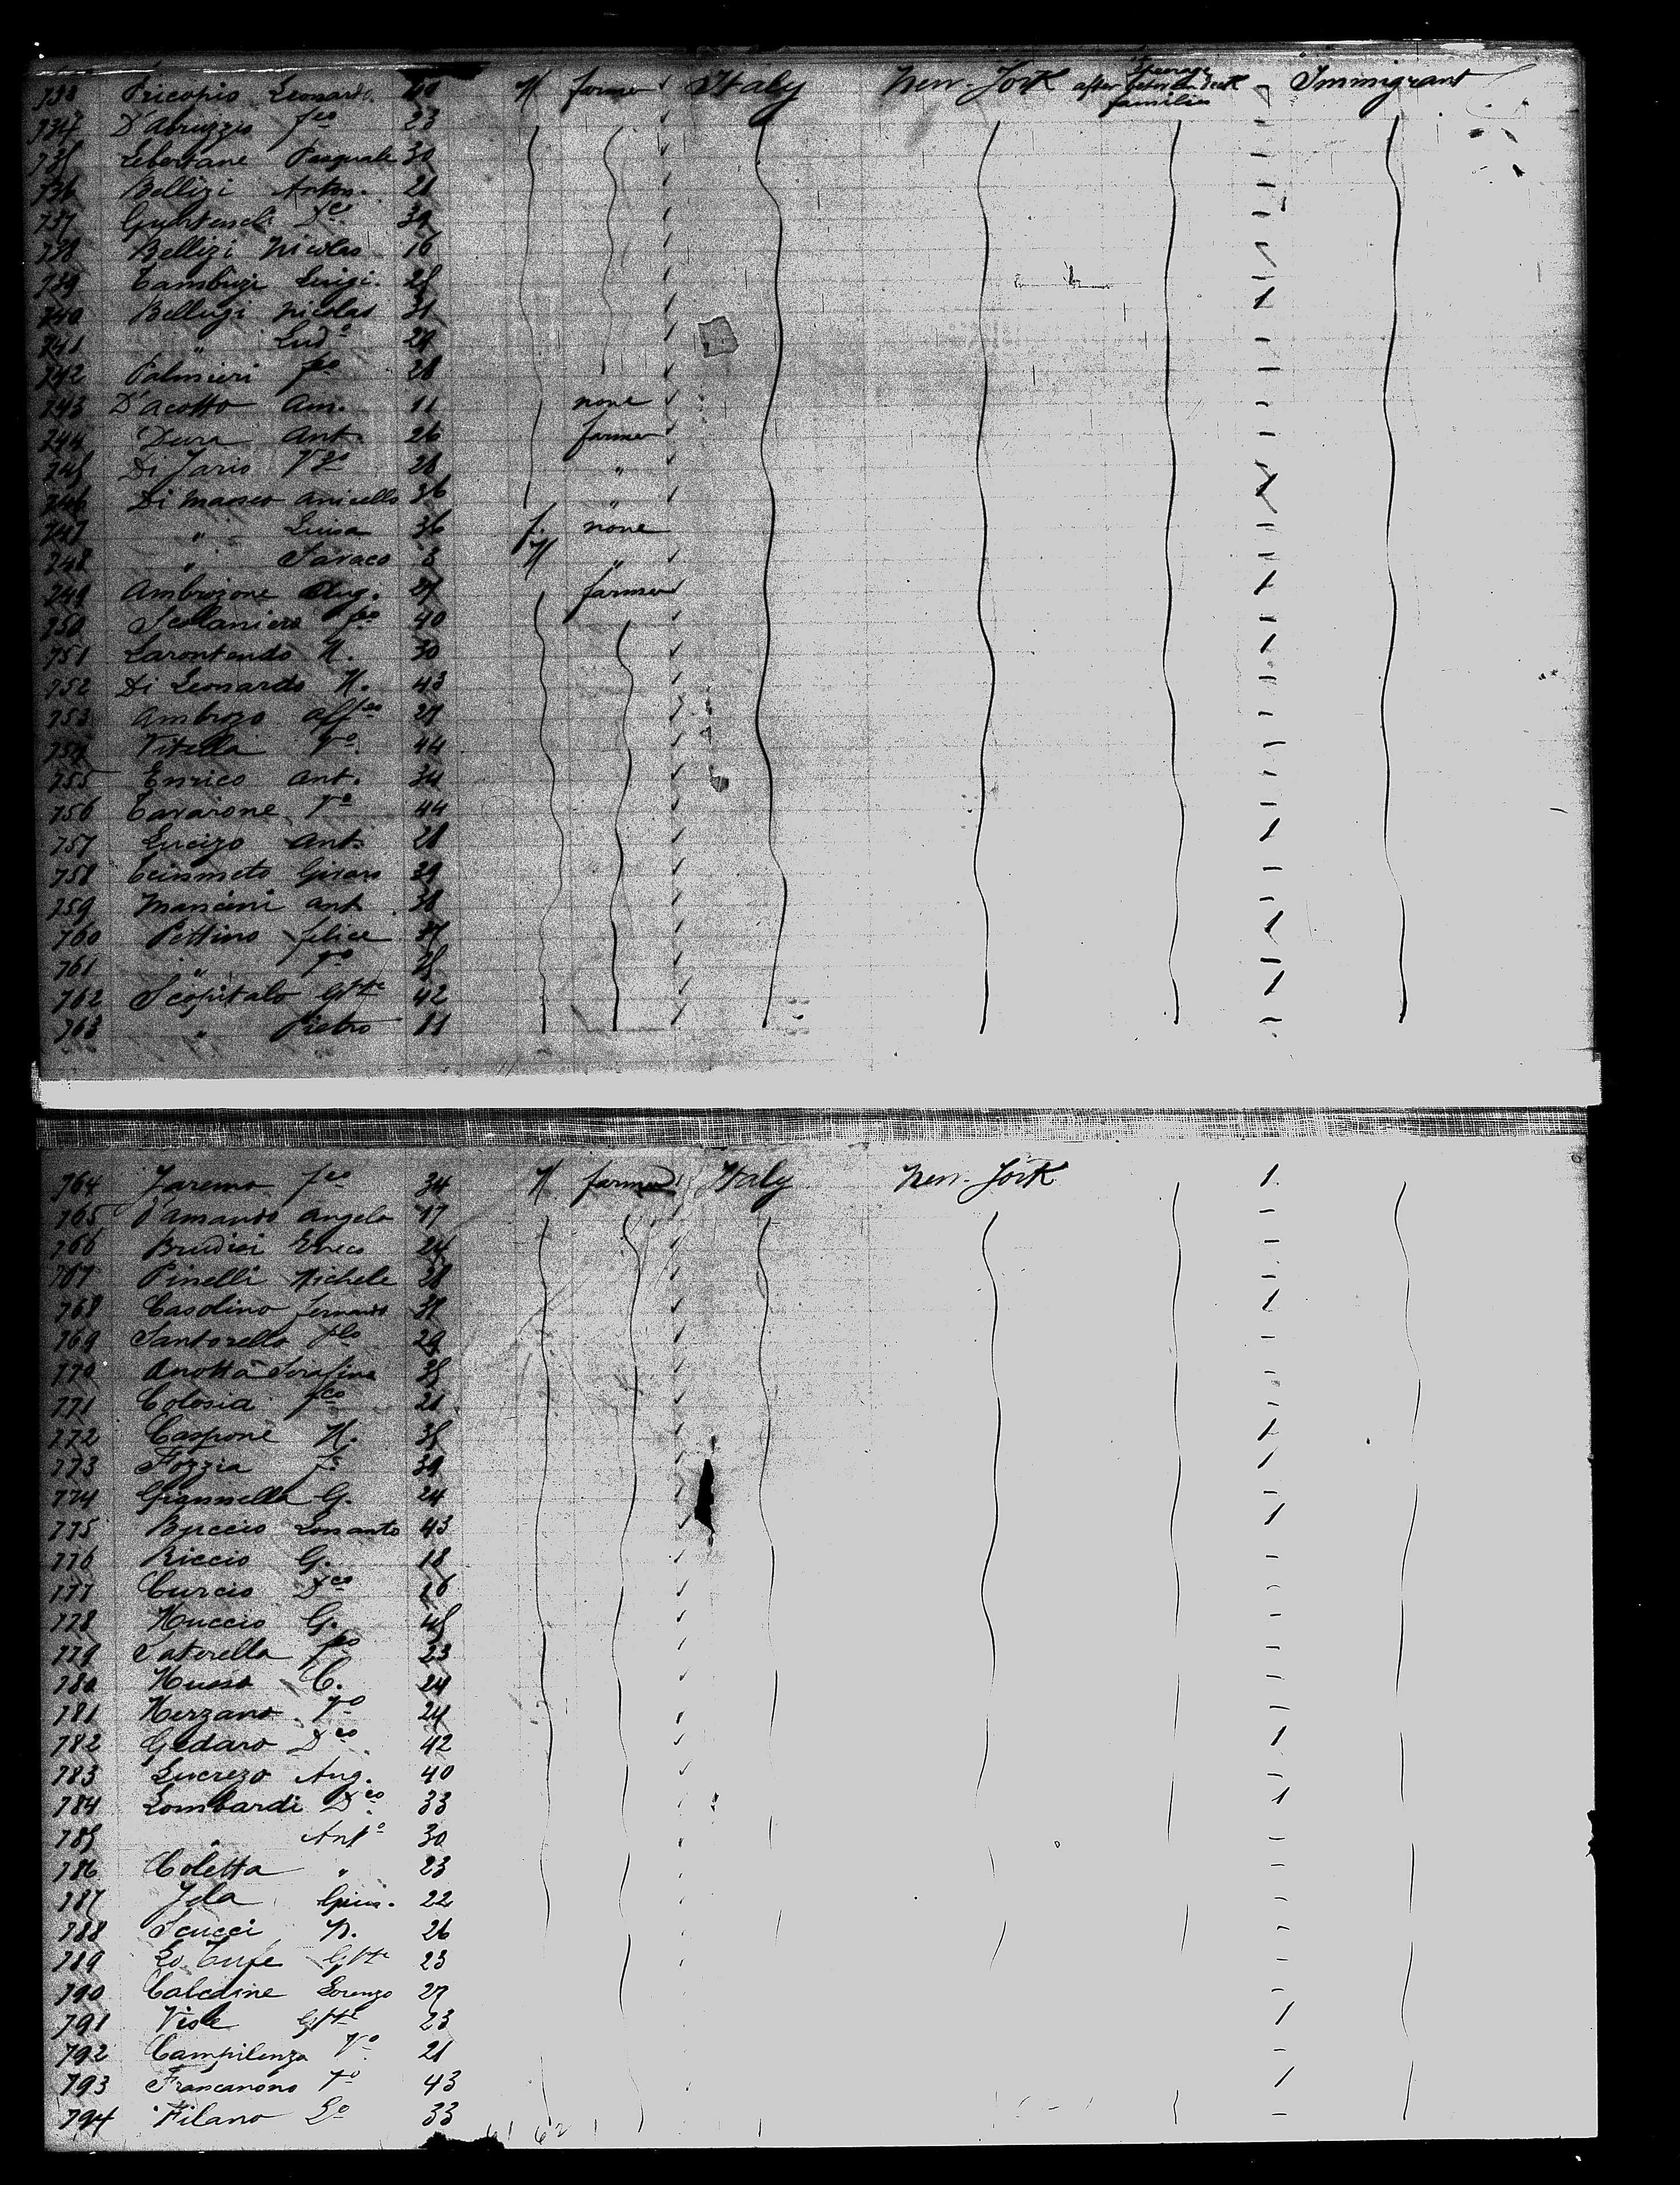 733 Pricopio Leonardo 40 M farmer Italy New-York Steerage after peter end deck families Immigrant
734 D'Abruzzo fco 23
735 Lebertane Pasquale 30
736 Bellizi Anton. 21
737 Dco 39
738 Bellizi Nicolas 16
739 Tambuzi Luigi. 25
740 Bellugi Nicolas 31
741 " Ludo 29
742 Palmieri fco 28
743 D'Acotto Am. 11 none
744 Dura Ant. 26 farmer
745 Di Jario Vzo 28 "
746 Di Maseo Anicello 36 "
747 " Luisa 36 f. none
748 " Savaco 3 M "
749 Ambrozone Aug. 27 farmer
750 Scolaniero fco 40
751 Larontendo M. 30
752 Di Leonardo M. 43
753 Ambrozo Alfco 27
754 Vitella Vo 44
755 Enrico Ant. 34
756 Tavarone Vo 44
757 Lucizo Ant. 28
758 Ceinmeto Giraro 39
759 Mancini Ant. 38
760 Pettino felice 37
761 " Vo 25
762 Scopitalo Gtte 42
763 " Pietro 11
764 Jaremo fco 34 M farmer Italy New-York 1.
765 D'Amando Angelo 17
766 Brudici Enrico 24
767 Pinelli Michele 28
768 Casolino fernando 37
769 Santorello flo 29
770 Anotta Serafina 35
771 Colosia fco 21
772 Caspone M. 35
773 Fozzia fo 39
774 Giannella G. 24
775 Buccio Lonsanto 43
776 Riccio G. 18
777 Curcio Dco 26
778 Muccio G. 45
779 Saterella fco 23
780 Musso C. 24
781 Merzano Vo 24
782 Gedaro Dco 42
783 Lucrezo Aug. 40
784 Lombardi Dco 33
785 " Anto 30
786 Coletta " 23
787 Jela Gius. 22
788 Scucci N. 26
789 Lo Tufe Gtte 23
790 Calcdine Lorenzo 27
791 Viole Gtte 23
792 Campilonga Vo 21
793 Francanono Vo 43
794 Filano Lo 33
61 62